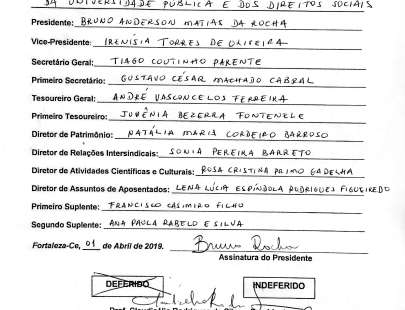 DA UNIVERSIDADE PÚBLICA E DOS DIREITOS SOCIAIS
Presidente: BRUNO ANDERSON MATIAS DA ROCHA
Vice-Presidente: IRENÍSIA TORRES DE OLIVEIRA
Secretário Geral: TIAGO COUTINHO PARENTE
Primeiro Secretário: GUSTAVO CÉSAR MACHADO CABRAL
Tesoureiro Geral: ANDRÉ VASCONCELOS FERREIRA
Primeiro Tesoureiro: JUVÊNIA BEZERRA FONTENELE
Diretor de Patrimônio: NATÁLIA MARIS CORDEIRO BARROSO
Diretor de Relações Intersindicais: SONIA PEREIRA BARRETO
Diretor de Atividades Científicas e Culturais: ROSA CRISTINA PRIMO GADELHA
Diretor de Assuntos de Aposentados: LENA LÚCIA ESPÍNDOLA RODRIGUES FIGUEIREDO
Primeiro Suplente: FRANCISCO CASIMIRO FILHO
Segundo Suplente: ANA PAULA RABELO E SILVA
Fortaleza-Ce, 01 de Abril de 2019. Bruno Rocha
Assinatura do Presidente
DEFERIDO INDEFERIDO